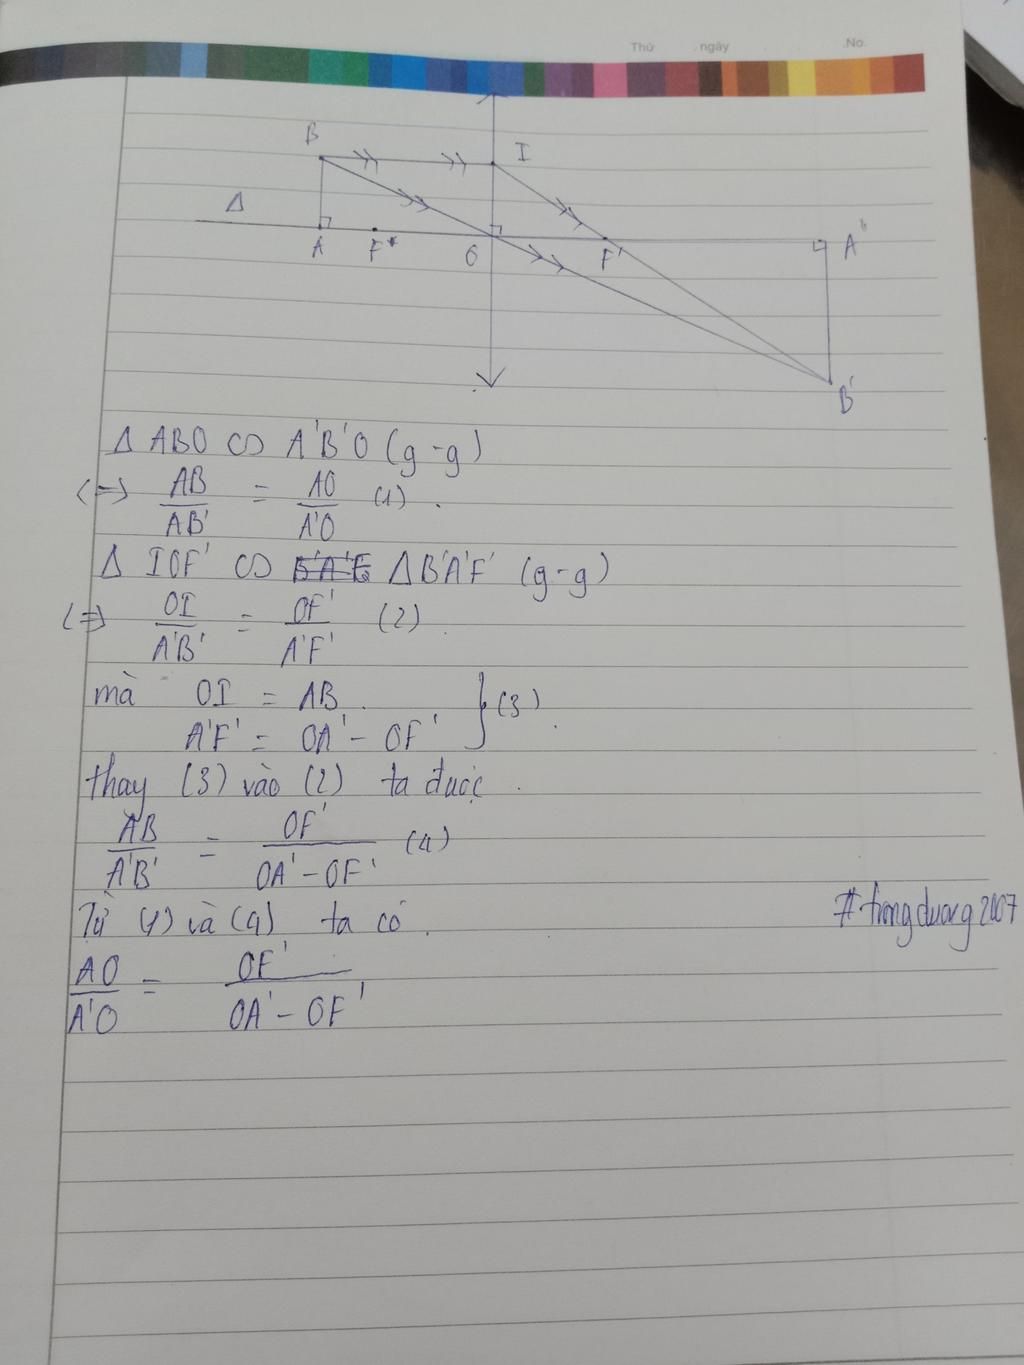 Thứ ngày No.
B I
Δ
A F O F' A' B'
Δ ABO ∽ A'B'O (g-g)
<=> AB/AB' = AO/A'O (1).
Δ IOF' ∽ ΔB'A'F' (g-g)
<=> OI/A'B' = OF'/A'F' (2).
mà OI = AB.
A'F' = OA' - OF' } (3).
thay (3) vào (2) ta được.
AB/A'B' = OF'/OA' - OF' (4)
Từ (1) và (4) ta có.
#trongduong2007
AO/A'O = OF'/OA' - OF'